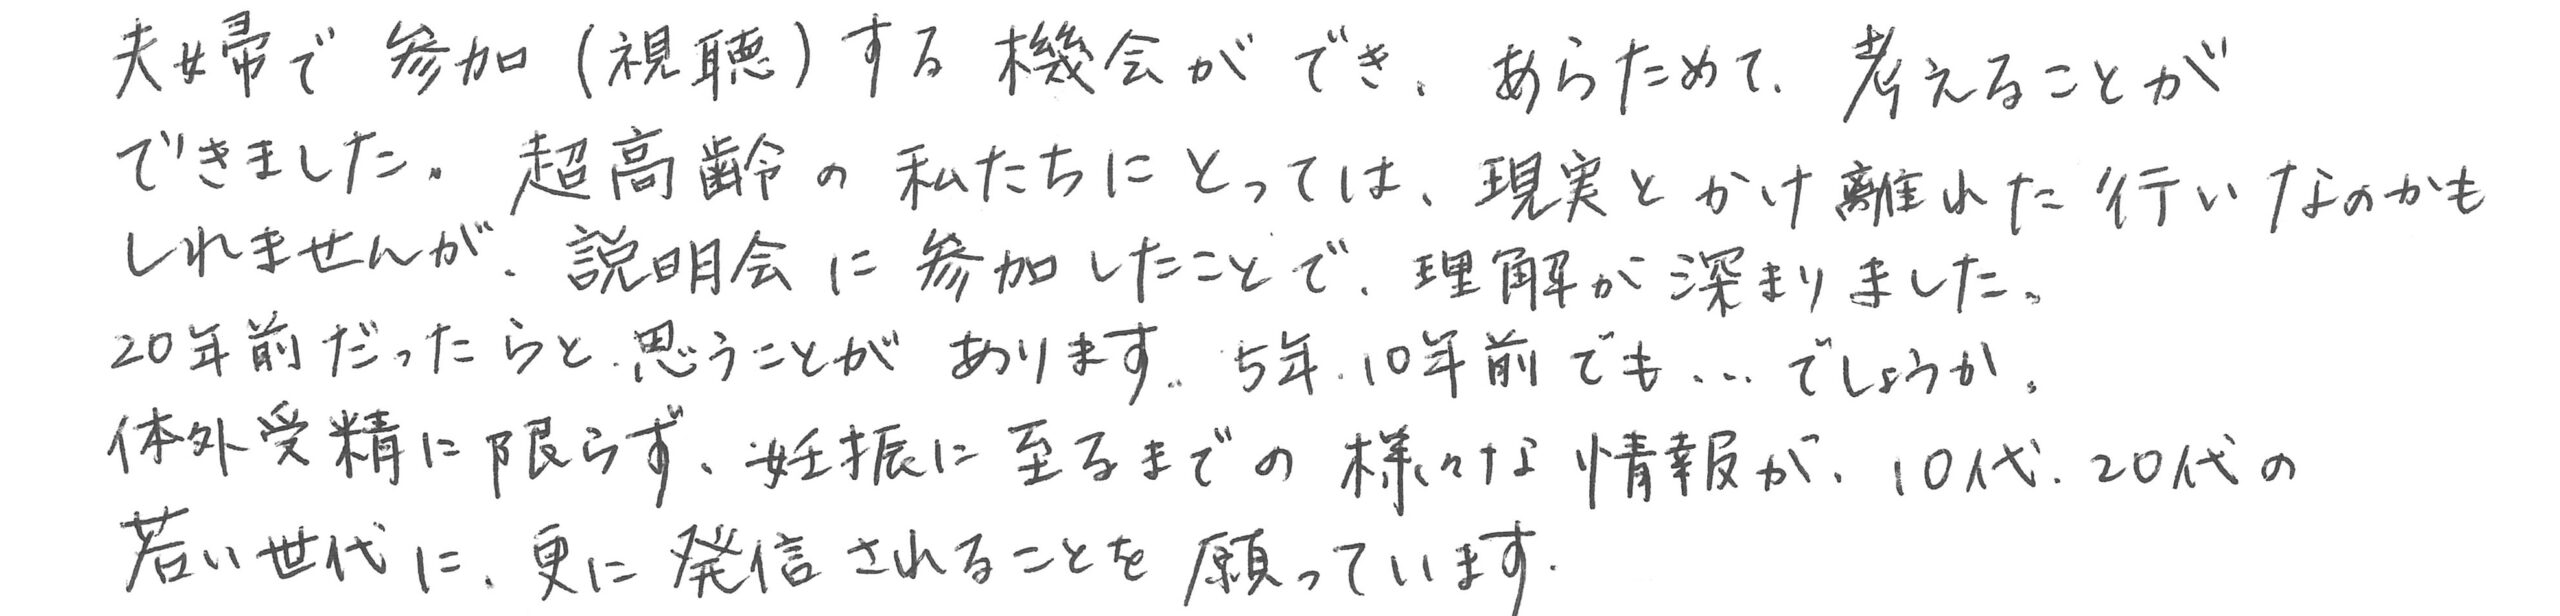 夫婦で参加(視聴)する機会ができ、あらためて、考えることが
できました。超高齢の私たちにとっては、現実とかけ離れた行いなのかも
しれませんが、説明会に参加したことで、理解が深まりました。
20年前だったらと思うことがあります。5年、10年前でも...でしょうか。
体外受精に限らず、妊娠に至るまでの様々な情報が、10代、20代の
若い世代に、更に発信されることを願っています。